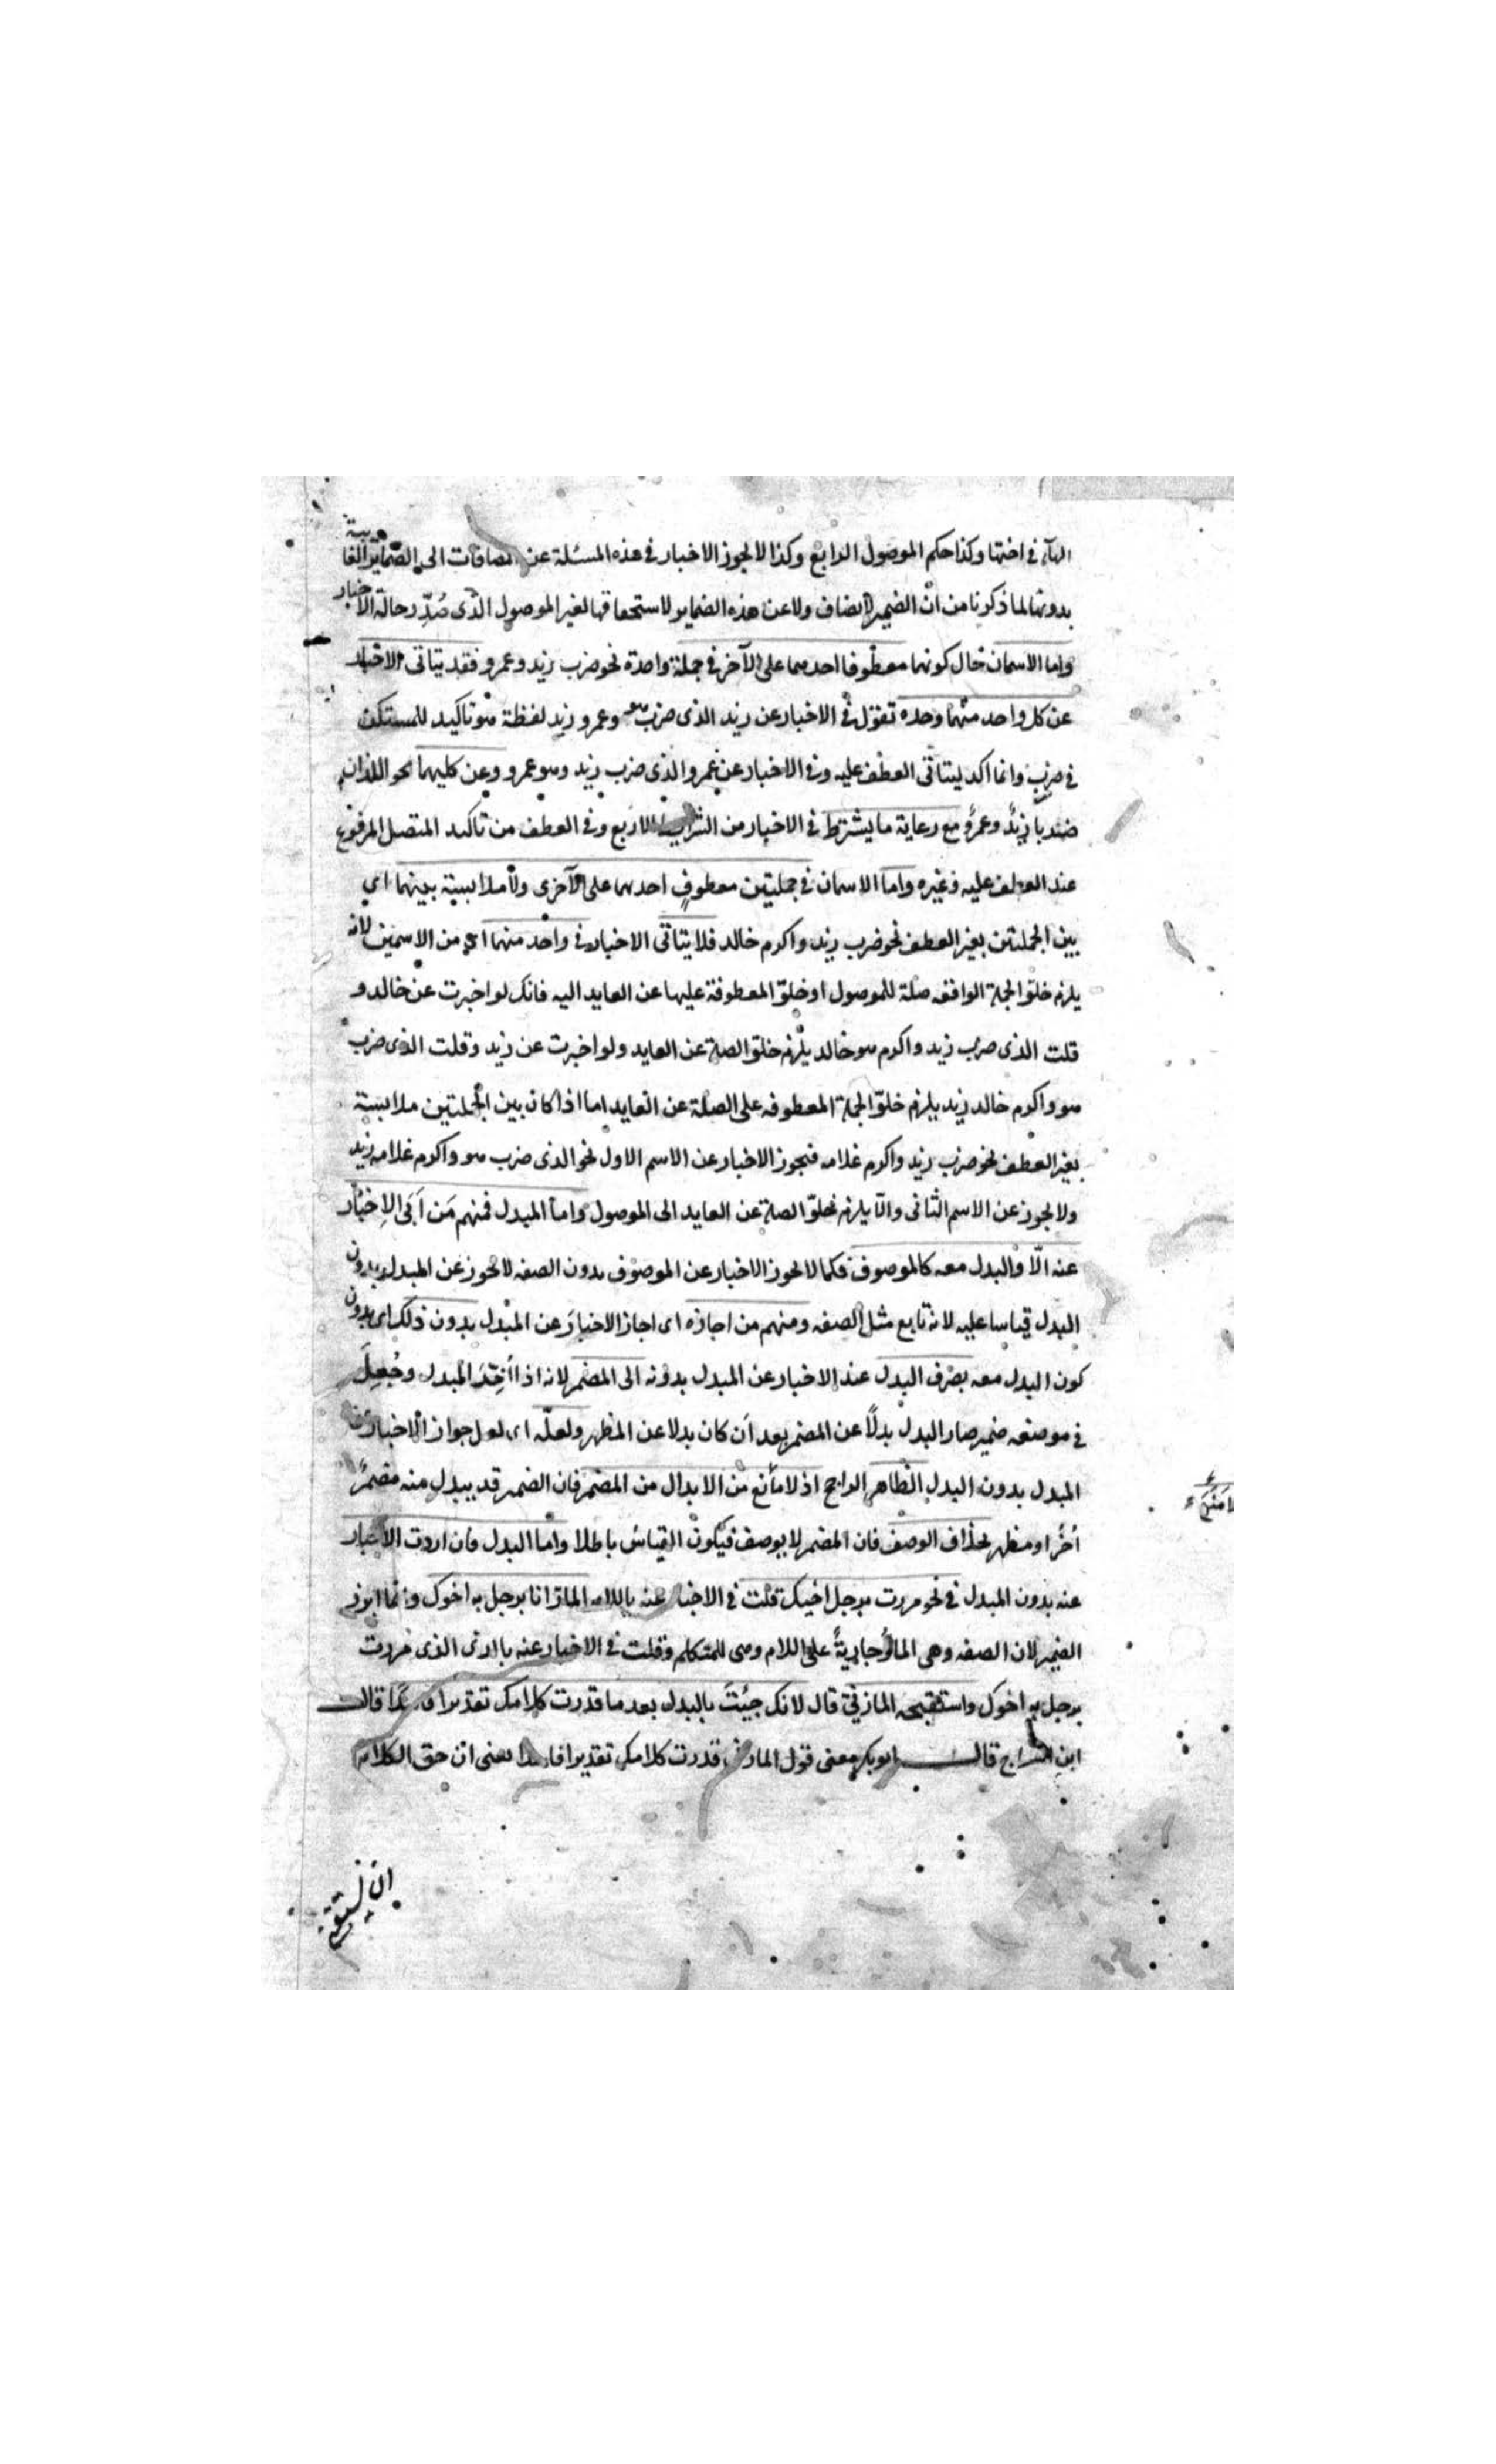 الهاء في اختها وكذا حكم الموصول الرابع وكذا لا يجوز الاخبار في هذه المسئلة عن مضافات الى الضماير الغايبة
بدونها لما ذكرنا من ان الضمير لا يضاف ولا عن هذه الضماير لاستحقاقها لغير الموصول الذى صُدِّر حالة الاخبار
واما الاسمان حال كونهما معطوفا احدهما على الآخر في جملة واحدة نحو ضرب زيد وعمرو فقد يتاتى الاخبار
عن كل واحد منهما وحده تقول في الاخبار عن زيد الذى ضرب هو وعمرو زيد لفظة هو تاكيد للمستكن
في ضرب وانما اكد ليتاتى العطف عليه وفي الاخبار عن عمرو الذى ضرب زيد وهو عمرو وعن كليهما نحو اللذان
ضربا زيدٌ وعمرٌو مع رعاية ما يشترط في الاخبار من الشرايط الاربع وفي العطف من تاكيد المتصل المرفوع
عند العطف عليه وغيره واما الاسمان في جملتين معطوفٍ احدهما على الآخرى ولا ملابسة بينهما اي
بين الجملتين بغير العطف نحو ضرب زيد واكرم خالد فلا يتاتى الاخبار في واحد منهما اى من الاسمين لانه
يلزم خلوّ الجملة الواقعه صلة للموصول او خلوّ المعطوفة عليها عن العايد اليه فانك لو اخبرت عن خالد و
قلت الذى ضرب زيد واكرم هو خالد يلزم خلوّ الصلة عن العايد ولو اخبرت عن زيد وقلت الذى ضرب
هو واكرم خالد زيد يلزم خلوّ الجملة المعطوفه على الصلة عن العايد اما اذا كان بين الجملتين ملابسة
بغير العطف نحو ضرب زيد واكرم غلامه فيجوز الاخبار عن الاسم الاول نحو الذى ضرب هو واكرم غلامه زيد
ولا يجوز عن الاسم الثانى والّا يلزم خلوّ الصلة عن العايد الى الموصول واما المبدل فمنهم مَن اَبَى الاِخبار
عنه الّا والبدل معه كالموصوف فكما لا يجوز الاخبار عن الموصوف بدون الصفه لا يجوز عن المبدل بدون
البدل قياسا عليه لانه تابع مثل الصفه ومنهم من اجازه اى اجاز الاخبارَ عن المبدل بدون ذلك اى بدون
كون البدل معه بصرف البدل عند الاخبار عن المبدل بدونه الى المضمر لانه اذا اُخِّرَ المبدل وجُعِلَ
في موضعه ضمير صار البدل بدلًا عن المضمر بعد اَن كان بدلا عن المظهر ولعلّه اى لعل جواز الاخبار عن
المبدل بدون البدل الظاهر الراجح اذ لا مانع من الابدال من المضمر فان الضمير قد يبدل منه مضمرٌ
اُخرُ او مظهر بخلاف الوصف فان المضمر لا يوصف فيكون القياسُ باطلا واما البدل فان اردت الاخبار
عنه بدون المبدل في نحو مررت برجل اخيك قلت في الاخبار عنه باللام المارّ انا برجل به اخوك وانما ابرز
الضمير لان الصفه وهى المارُّ جاريةٌ على اللام وهى للمتكلم وقلت في الاخبار عنه بالذى الذى مررت
برجل به اخوك واستقبحه المازني قال لانك جئتَ بالبدل بعد ما قدرت كلامك تقديرا قال
ابن السراج قال ابو بكر معنى قول المازنى قدرت كلامك تقديرا فاسدا يعنى ان حق الكلام